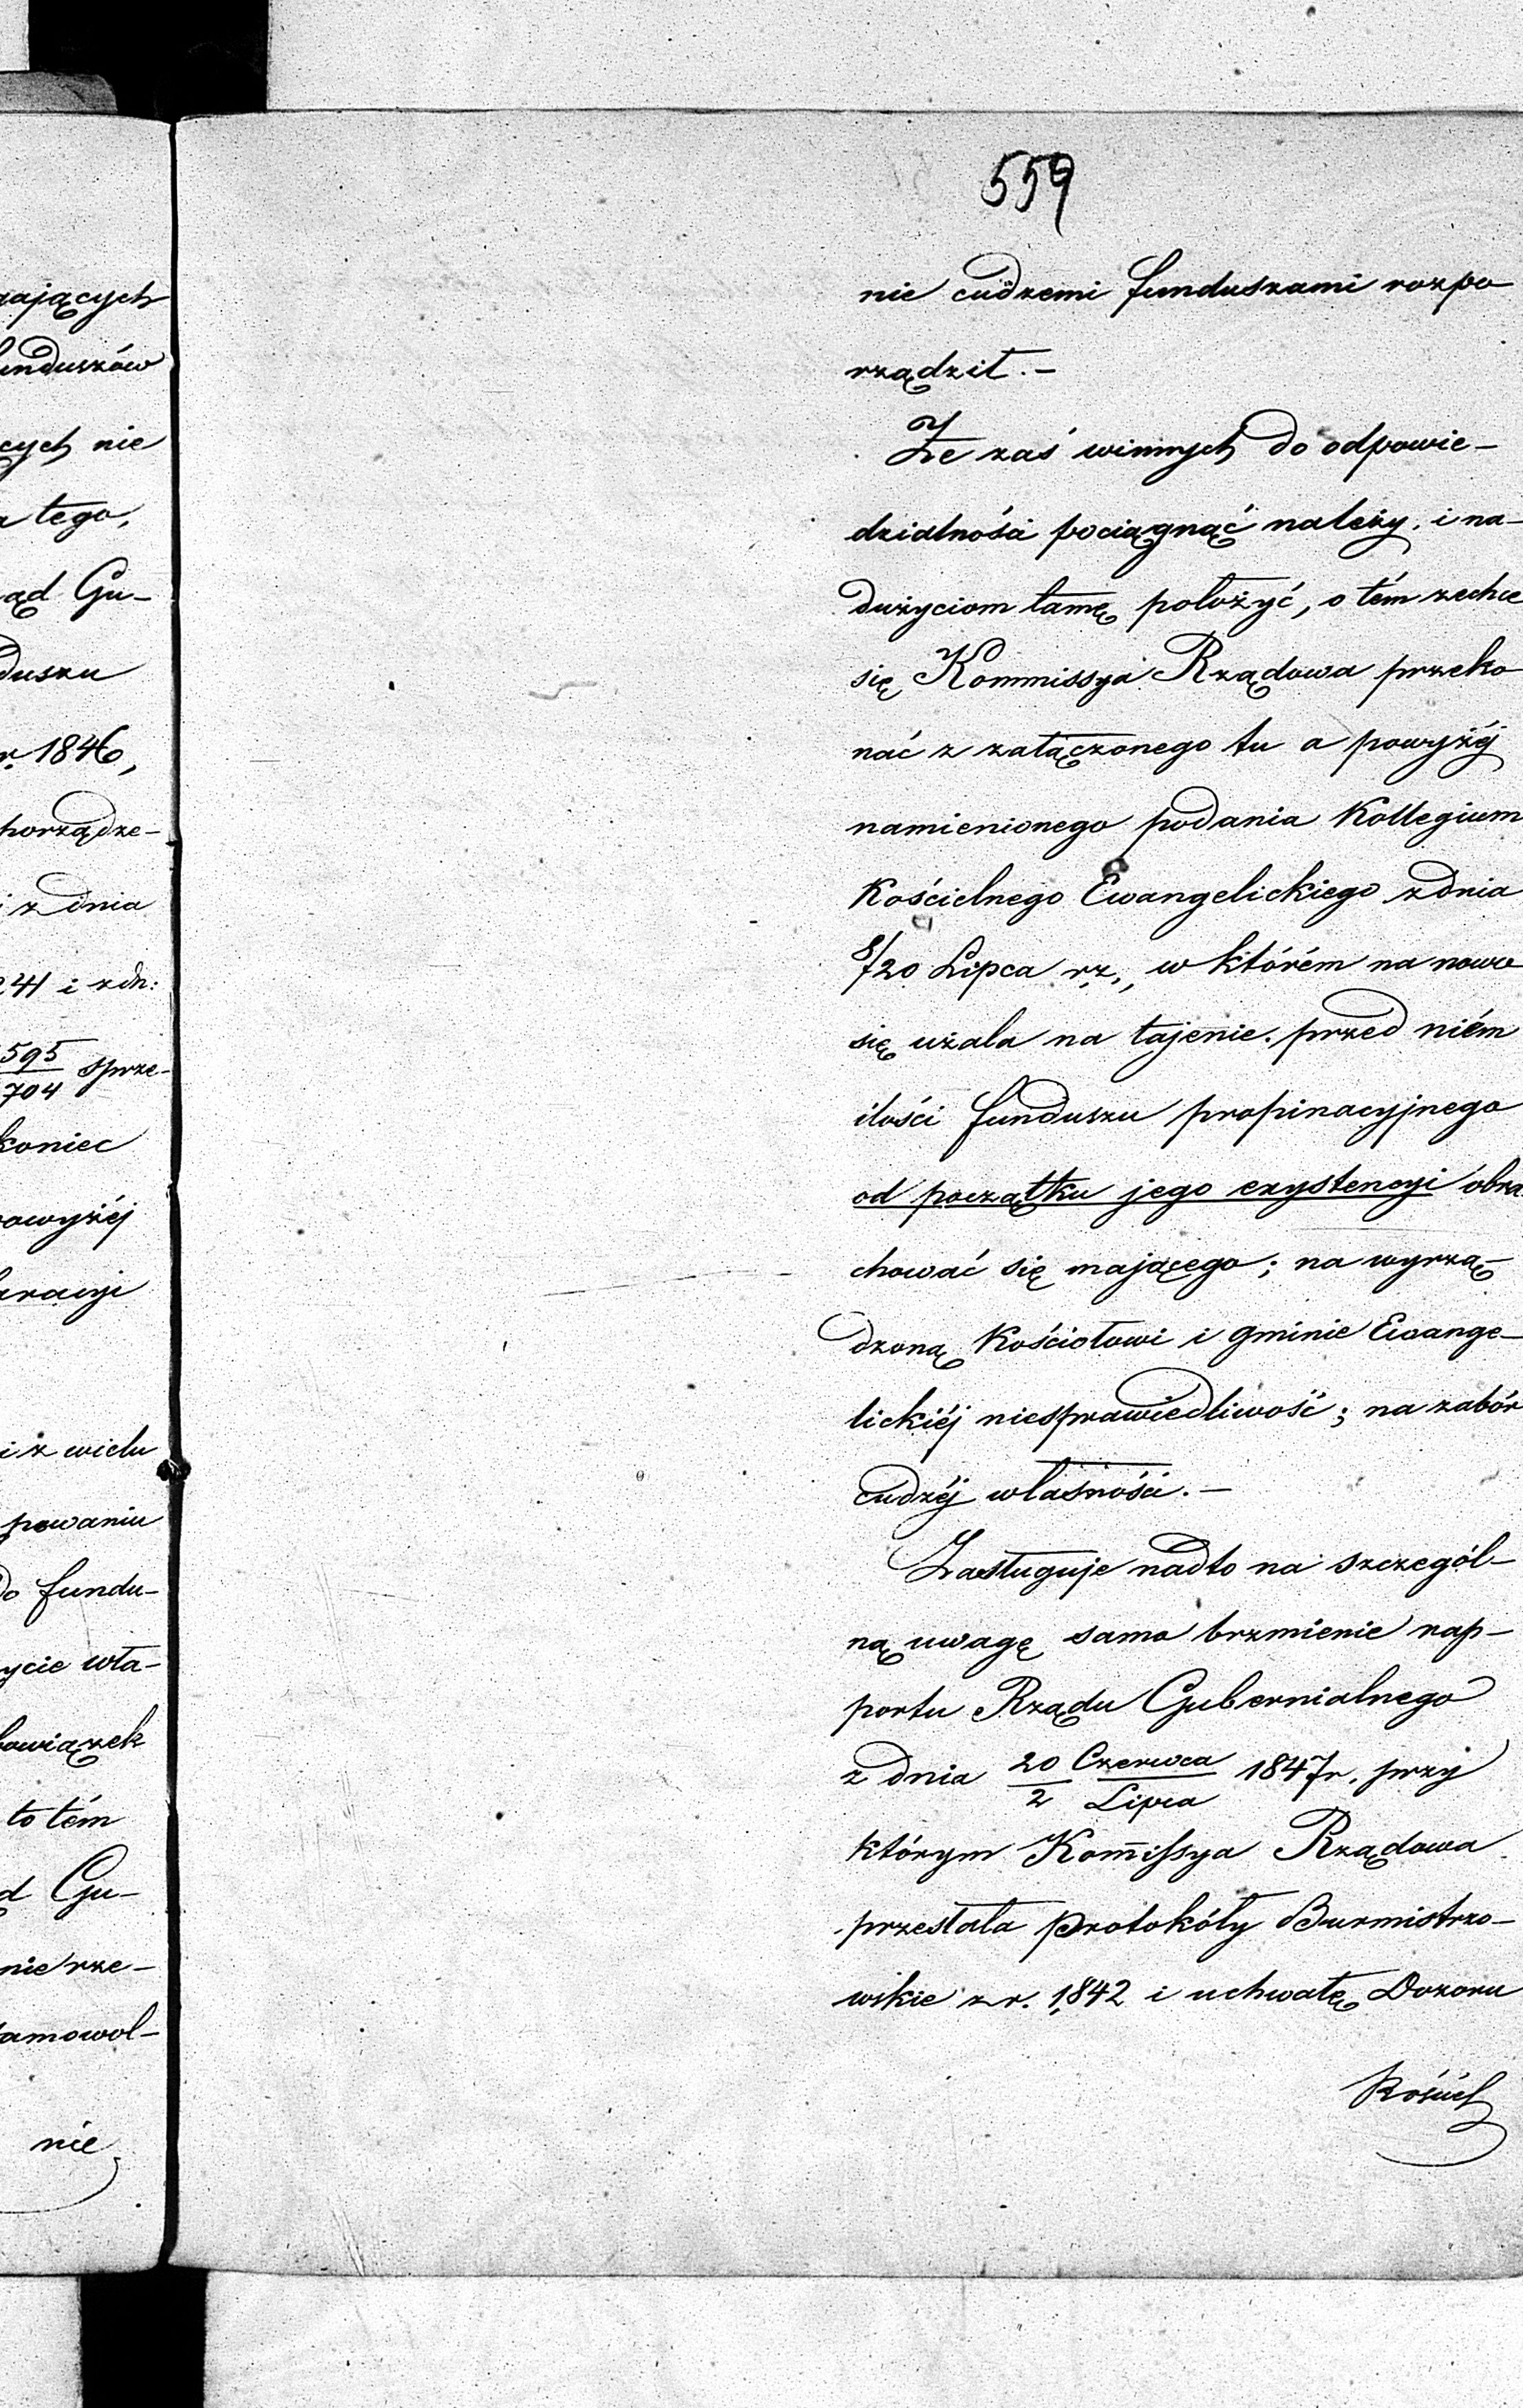 ających
unduszów
cych nie
a tego,
ąd Gu-
duszu
r. 1846,
porządze-
i z dnia
241 i z dn:
595
704 sprze-
koniec
powyżéj
aracyi
i z wielu
powaniu
do fundu-
ycie wła-
bowiązek
to tém
d Gu-
nie rze-
samowol-
nie
559
nie cudzemi funduszami rozpo
rządził.-
Że zaś winnych do odpowie-
dzialności pociągnąć należy, i na-
dużyciom tamę położyć, o tém zechce
się Kommissya Rządowa przeko
nać z załączonego tu a powyżéj
namienionego podania Kollegium
Kościelnego Ewangelickiego z dnia
8/20 Lipca r.z., w którém na nowo
się użala na tajenie przed niém
ilości funduszu propinacyjnego
od początku jego exystencyi obra
chować się mającego; na wyrzą-
dzoną Kościołowi i gminie Ewange-
lickiéj niesprawiedliwość; na zabór
cudzéj własności.-
Zasługuje nadto na szczegól-
ną uwagę samo brzmienie rap-
portu Rządu Gubernialnego
z dnia 20 Czerwca / 2 Lipca 1847 r. przy
którym Kom̄issya Rządowa
przesłała protokóły Burmistrzo-
wskie z r. 1842 i uchwałę Dozoru
Kościel